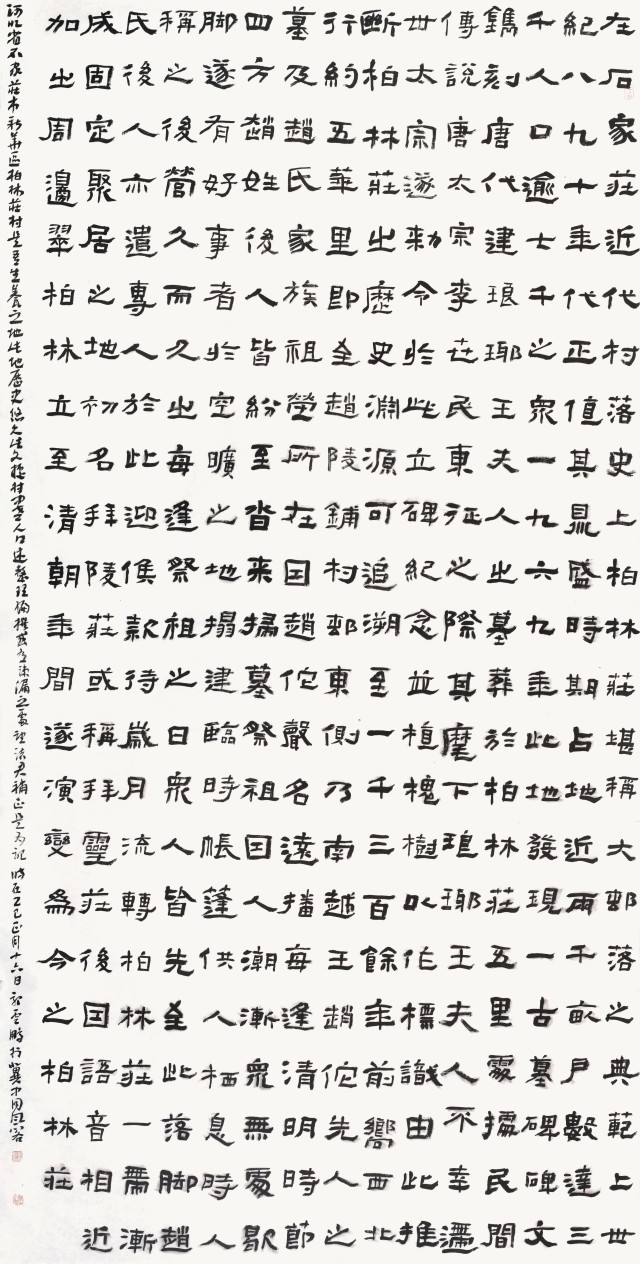 在石家莊近代村落史上柏林莊堪稱大邨落之典範上世
紀八九十年代正值其晁盛時期占地近兩千畝戶數達三
千人口逾士千之衆一九六九年此地發現一古墓碑碑文
鐫刻唐代建琅琊王夫人之墓葬於柏林莊五里處據民間
傳說唐太宗李世民東征之際其麾下琅琊王夫人不幸
世太宗遂勅令於此立碑紀念並植槐樹以作標識由此推
斷柏林莊之歷史淵源可追溯至一千三百餘年前嚮西北
行約五華里即至趙陵鋪村邨東側乃南越王趙佗先人之
墓及趙氏家族祖塋所在因趙佗聲名遠播每逢清明時節
四方趙姓後人皆紛至沓来掃墓祭祖因人潮漸衆無處歇
脚遂有好事者於空曠之地搨建臨時帳蓬供人栖息時人
稱之後營久而久之每逢祭祖之日衆人皆先至此落脚趙
氏後人亦遣專人於此迎候款待歲月流轉柏林莊一帶漸
成固定聚居之地初名拜陵莊或稱拜靈莊後因語音相近
加之周邊翠柏林立至清朝年間遂演變為今之柏林莊
河北省石家莊市新華區柏林莊村是吾生養之地此地歷史悠久此文據村中老人口述整理編撰或有疏漏之處望補正是為記時在乙巳正月十六日